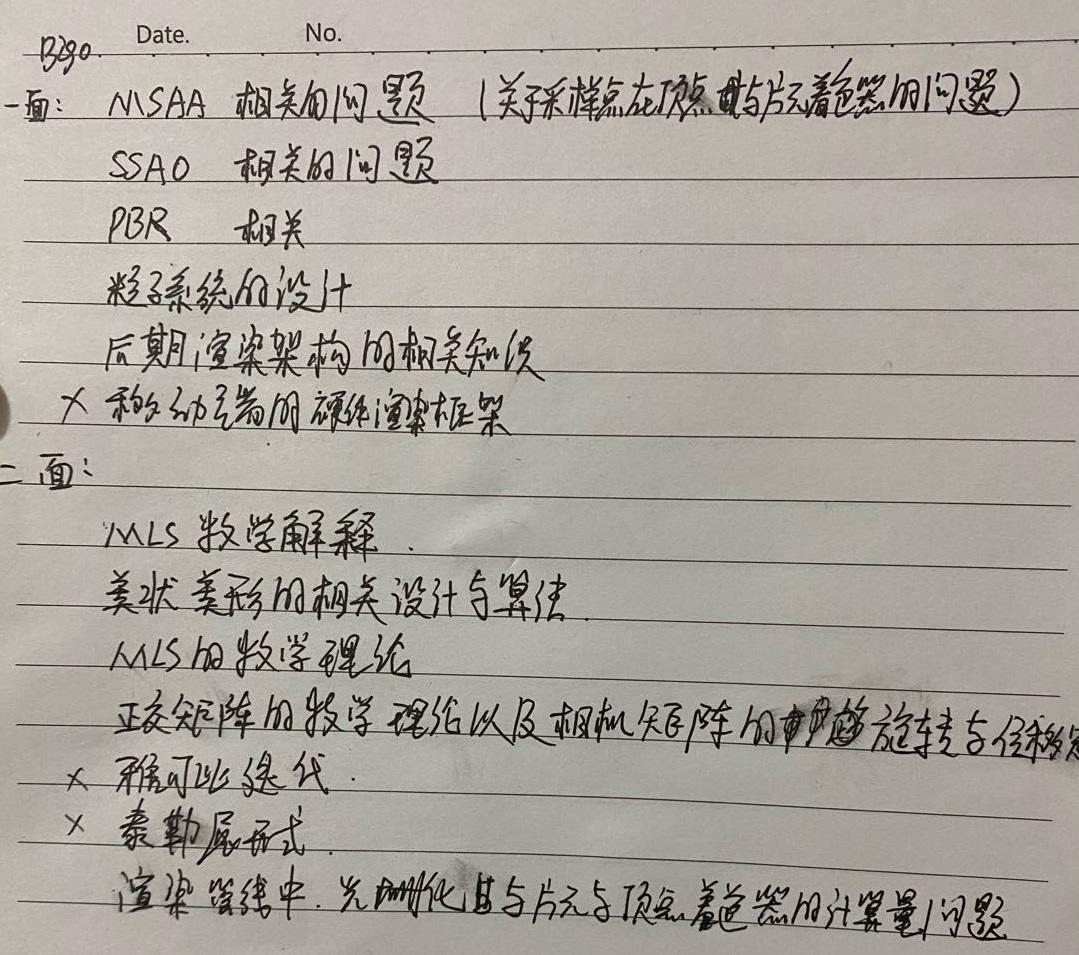 Date. No.
Bigo.
一面: MSAA 相关的问题 (关于采样点在顶点与片元着色器的问题)
SSAO 相关的问题
PBR 相关
粒子系统的设计
后期渲染架构的相关知识
× 移动端的硬件渲染框架
二面:
MLS 数学解释.
美状美形的相关设计与算法.
MLS的数学理论
正交矩阵的数学理论以及相机矩阵的旋转与位移
× 雅可比迭代.
× 泰勒展开式.
渲染管线中.光栅化与片元与顶点着色器的计算量问题